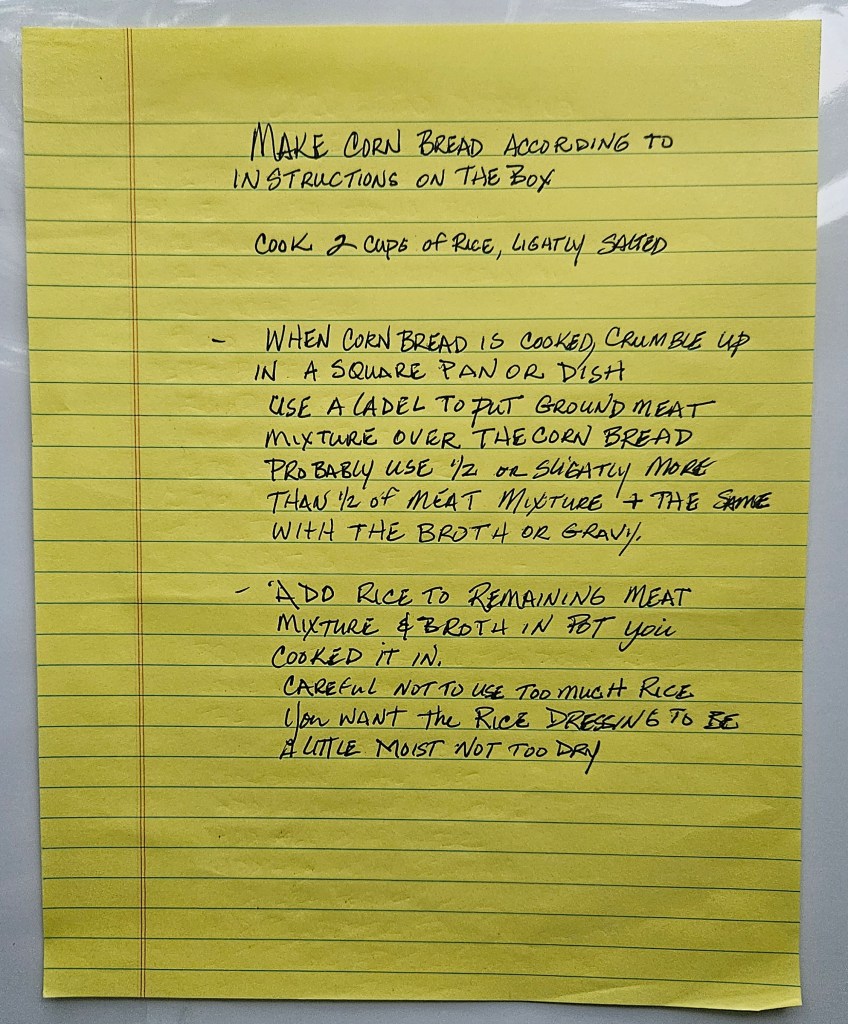 MAKE CORN BREAD ACCORDING TO
INSTRUCTIONS ON THE BOX
COOK 2 CUPS of RICE, LIGHTLY SALTED
- WHEN CORN BREAD IS COOKED, CRUMBLE UP
IN A SQUARE PAN OR DISH
USE A LADEL TO PUT GROUND MEAT
MIXTURE OVER THE CORN BREAD
PROBABLY USE 1/2 OR SLIGHTLY MORE
THAN 1/2 of MEAT MIXTURE + THE SAME
WITH THE BROTH OR GRAVY.
- ADD RICE TO REMAINING MEAT
MIXTURE & BROTH IN POT you
COOKED IT IN.
CAREFUL NOT TO USE TOO MUCH RICE
You WANT the RICE DRESSING TO BE
A LITTLE MOIST NOT TOO DRY